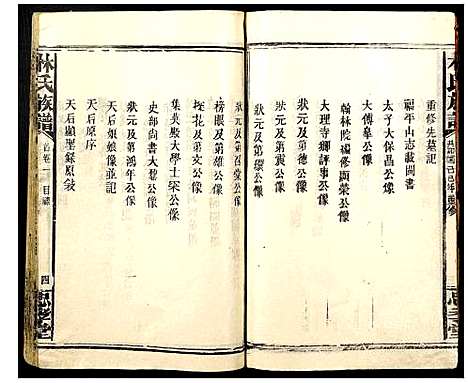 林氏族譜
重修先墓記
福平山志載閩書
太子大保昌公像
大傅皋公像
翰林院編修顯榮公像
大理寺卿評事公像
狀元及第德公像
狀元及第震公像
狀元及第環公像
狀元及第召堂公像
榜眼及第雄公像
探花及第文公像
集英殿大學士栗公像
吏部尚書大蓁公像
狀元及第鴻年公像
天后娘娘像並記
天后原序
天后顯聖錄原敘
林氏族譜
首卷一
目錄
四
思孝堂